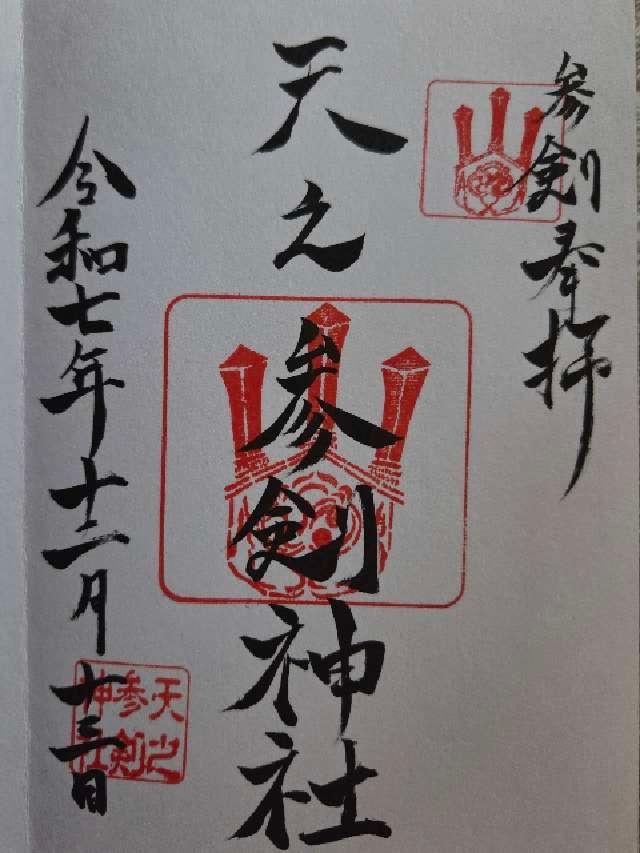 参剣奉拝
天之参剣神社
令和七年十二月十三日
天之
参剣
神社